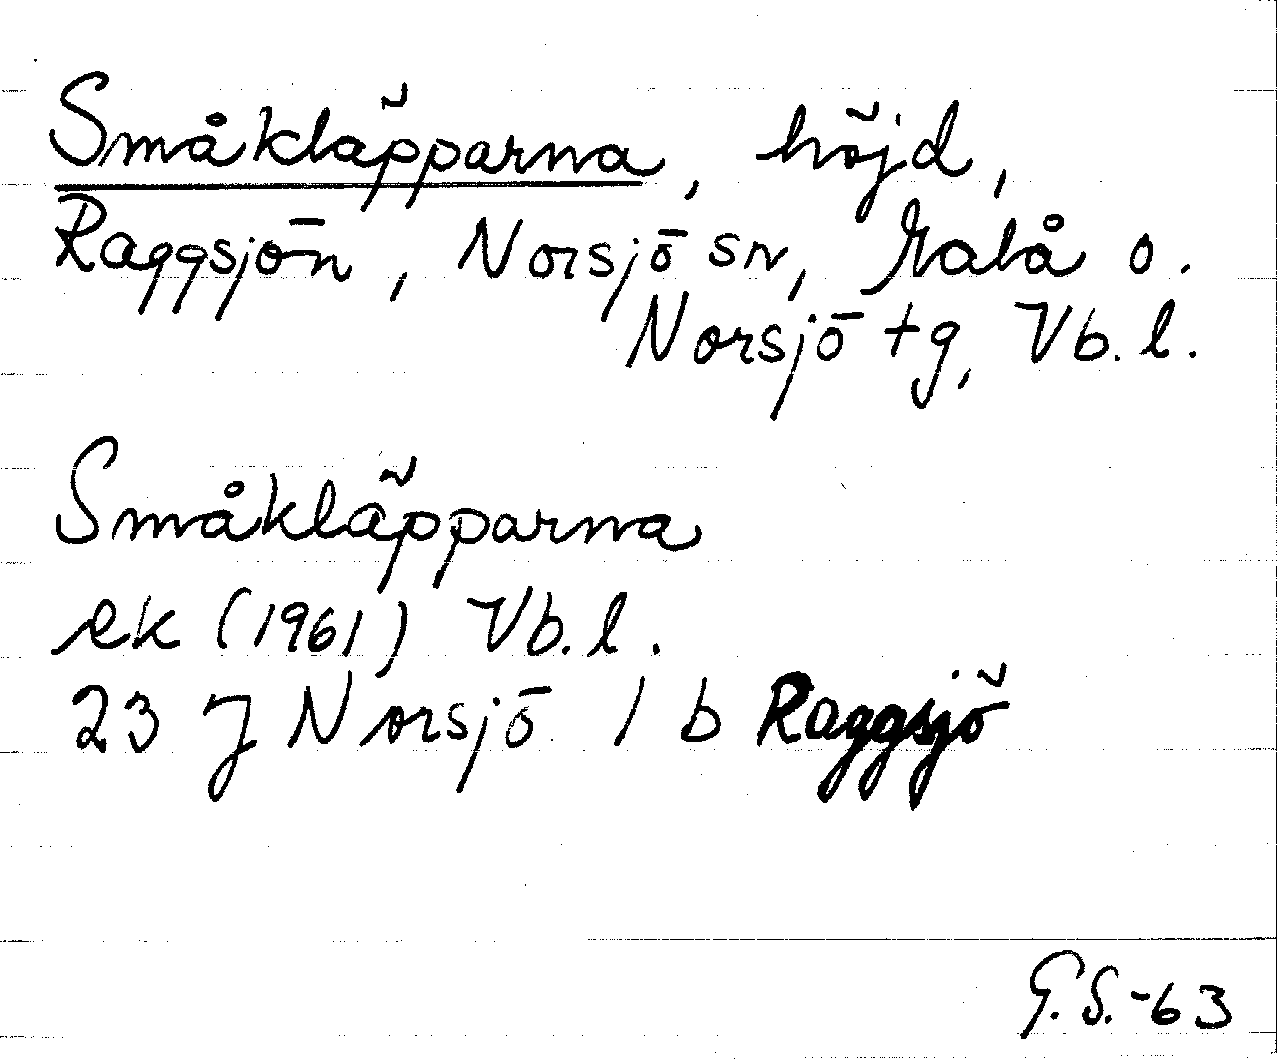 Småkläpparna, höjd,
Raggsjön, Norsjö sn, Malå o.
Norsjö tg, Vb. l.
Småkläpparna
ek (1961) Vb. l.
23 J Norsjö 1 b Raggsjö
G.S.-63